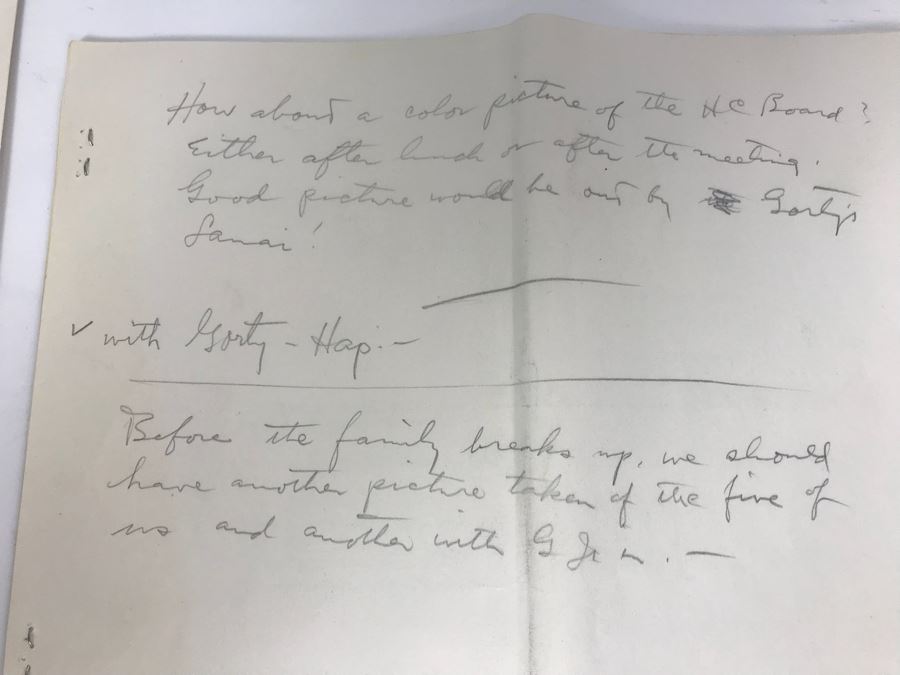 How about a color picture of the HC Board?
Either after lunch or after the meeting.
Good picture would be out by Gorty's
Lanai!
✓ with Gorty - Hap. -
Before the family breaks up, we should
have another picture taken of the five of
us and another with G Jr in. —